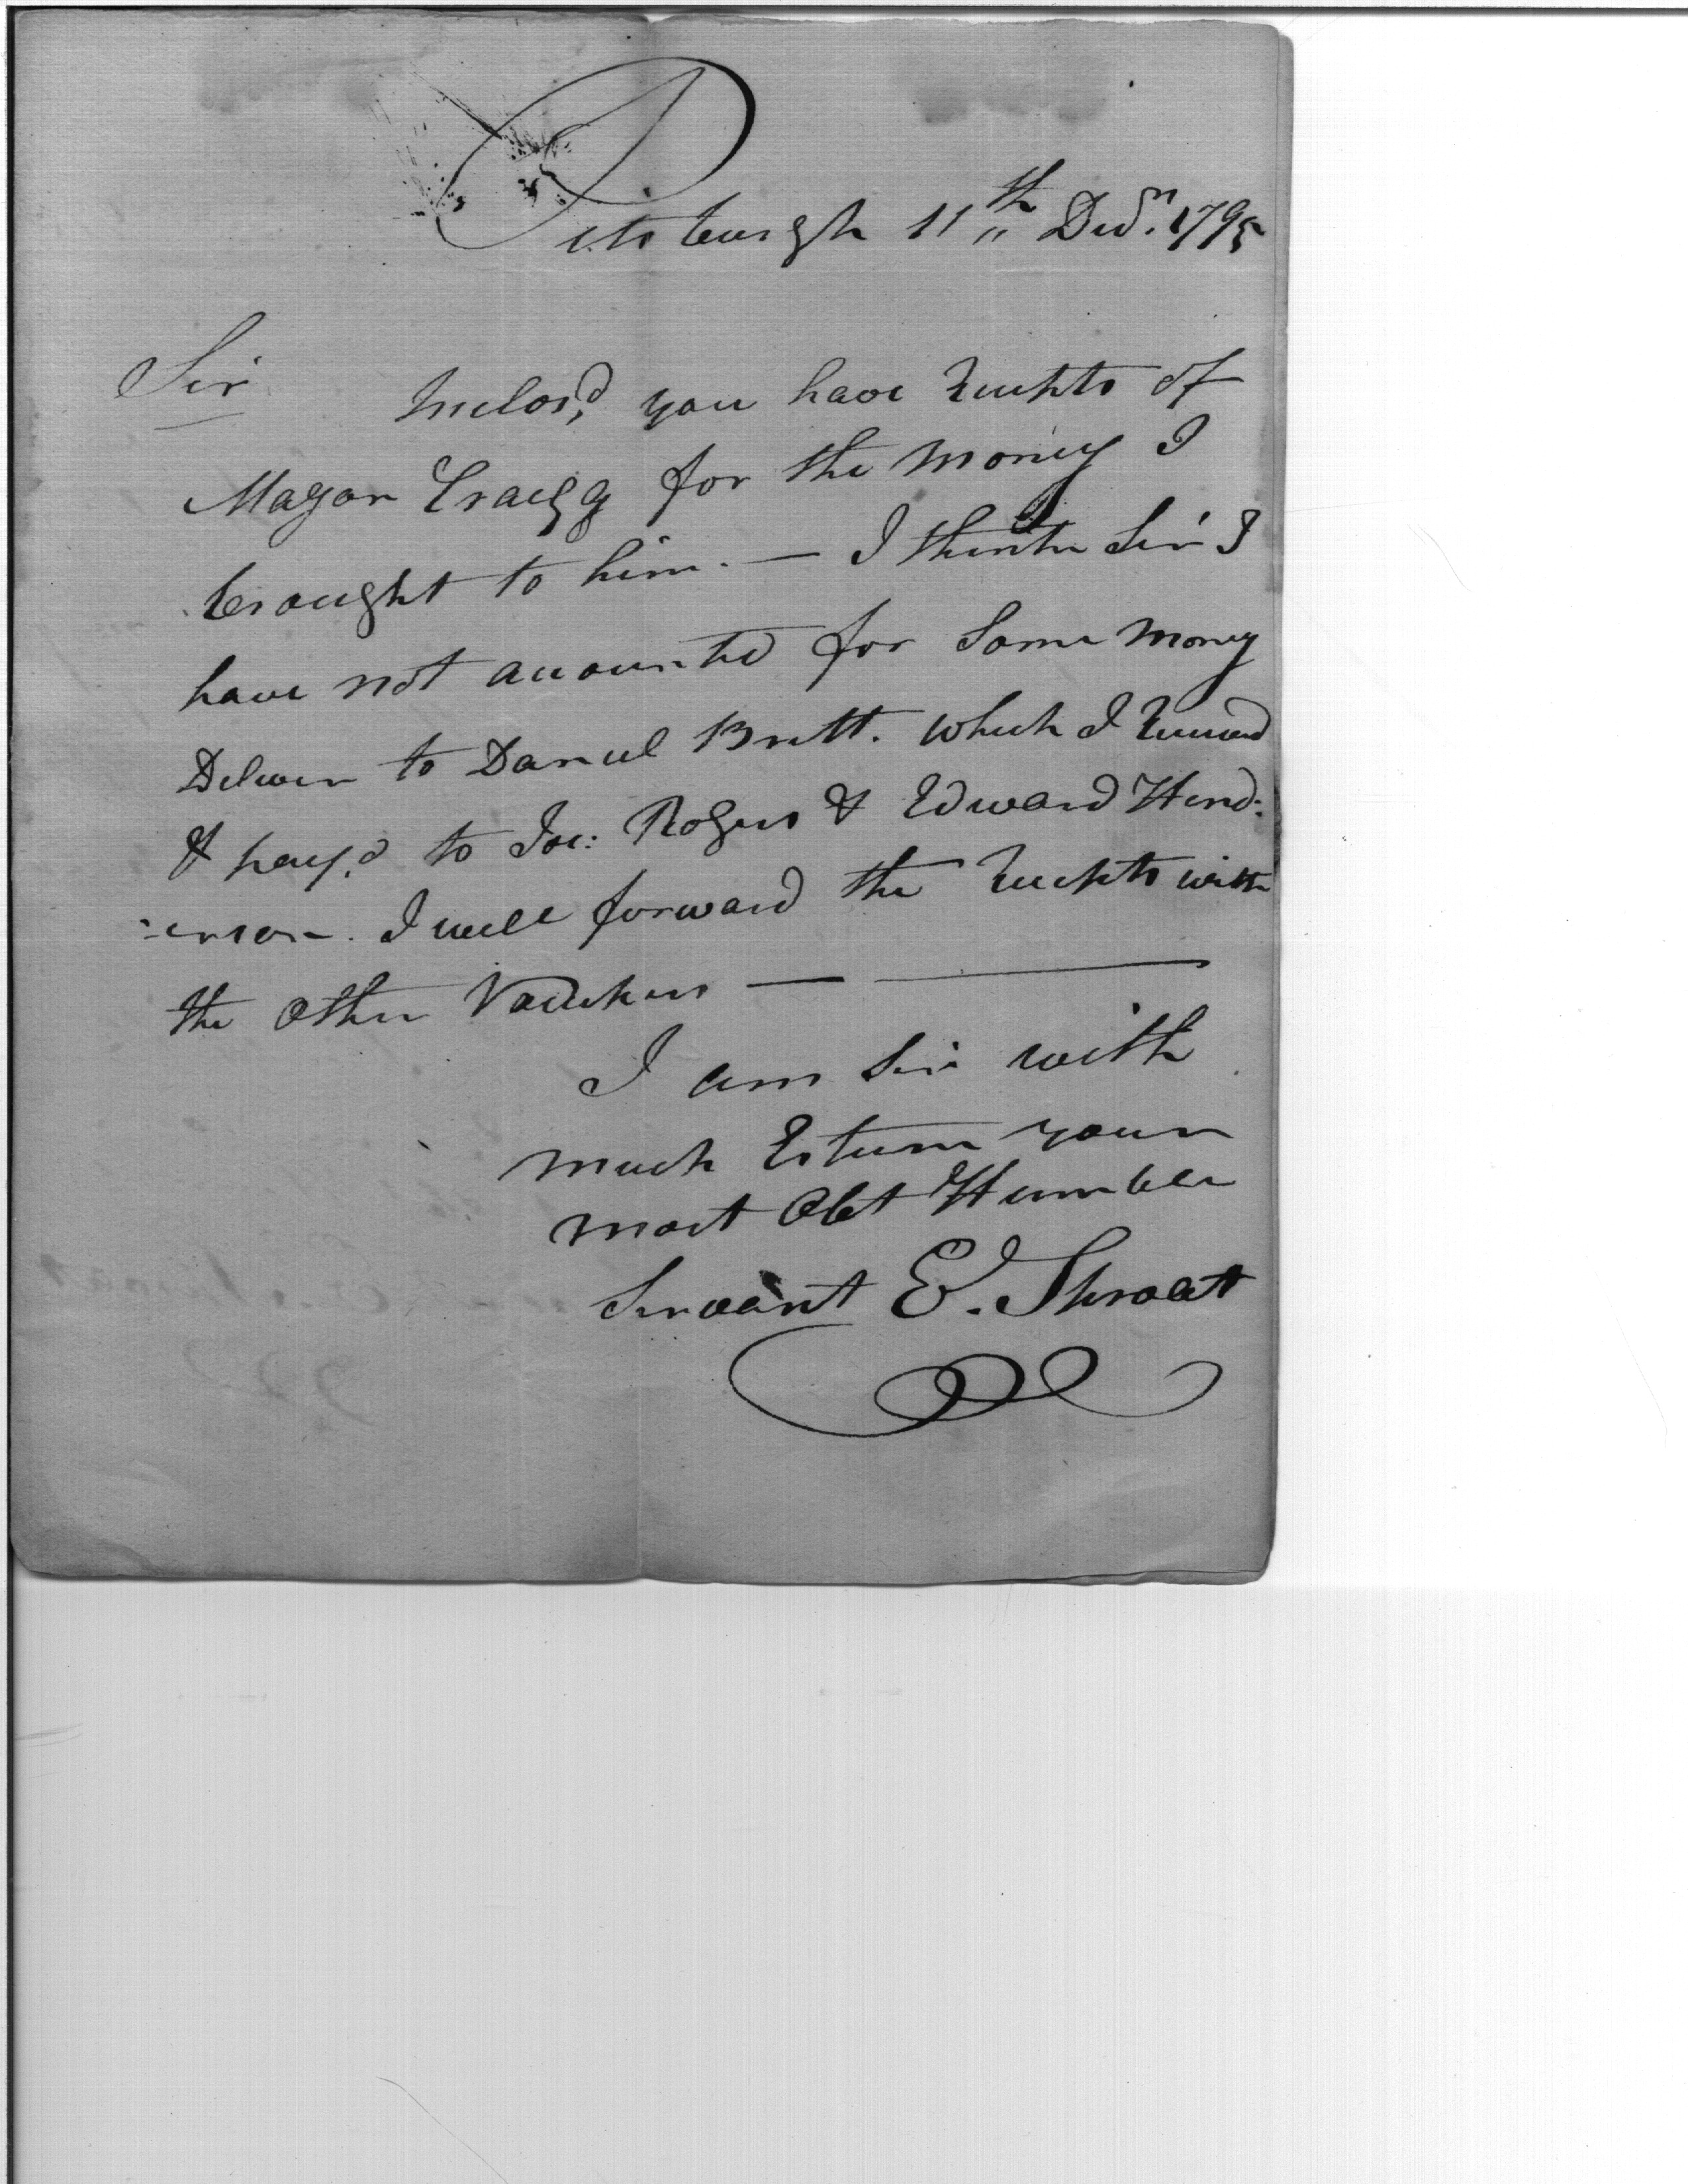 Pittsburgh 11th Decr. 1795
Sir
Inclos'd you have Receipts of
Mayor Craigg for the money I
brought to him. — I think Sir I
have not accounted for Some money
Deliver to Daniel Britt. which I Received
& pay,d to Jos: Rogers & Edward Hend:
:erson. I will forward the Receipts with
the Other Vouchers —
I am Sir with
much Esteem your
most Obt Humble
Servant E. Shroat